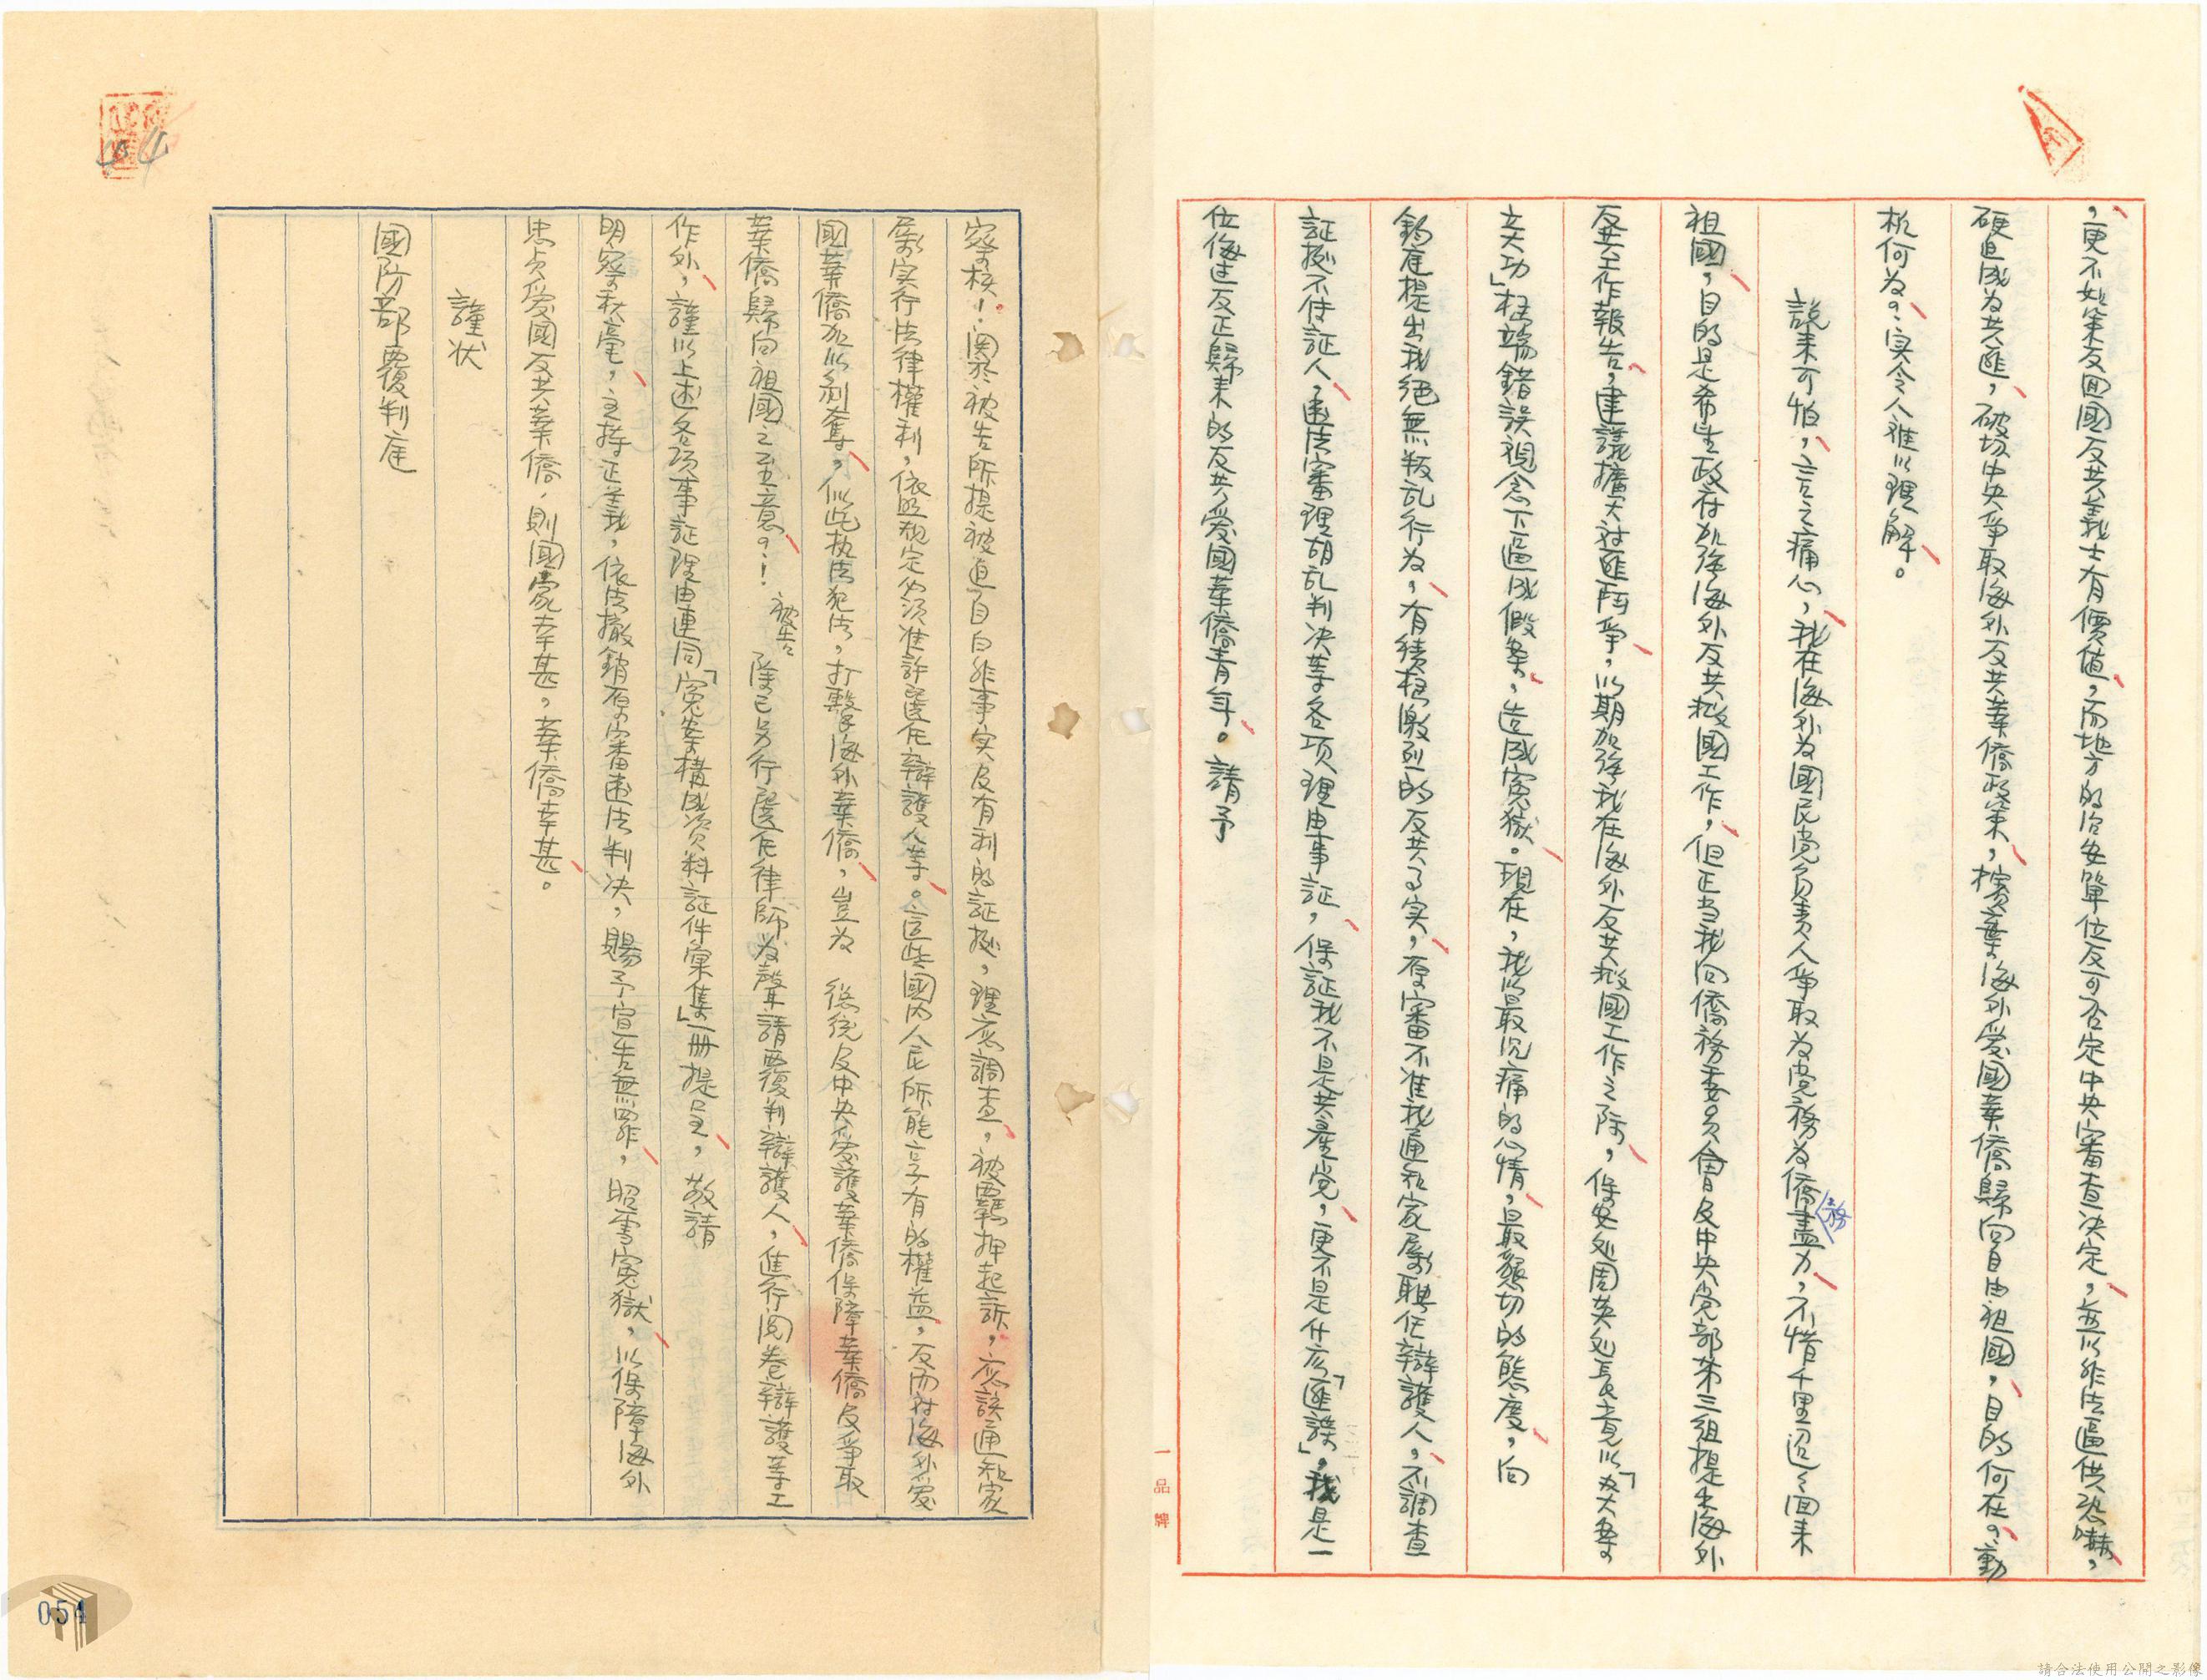 ，更不如策反回國反共義士有價值，而地方的治安單位反可否定中央審查决定，並以非法逼供恐嚇，
硬迫成為共匪，破坊中央爭取海外反共華僑政策，摧毀海外愛國華僑歸向自由祖國，目的何在？動
机何為？实令人难以理解。
說来可怕，言之痛心，我在海外为國民党負責人爭取为党務为僑務盡力，不惜千里迢迢回来
祖國，目的是希望政府加強海外反共救國工作，但正当我向僑務委員會及中央党部第三組提出海外
反共工作報告，建議擴大对匪鬥爭，以期加強我在海外反共救國工作之際，保安处周英处長竟以「为大案
立大功」極端錯誤覌念下逼成假案，造成寃獄。現在，我以最沉痛的心情，最懇切的態度，向
鈞庭提出我絕無叛乱行为，有積極激烈的反共事实，原審不准我通知家屬聘任辯護人，不調查
証據不传証人，違法審理胡乱判决等各項理由事証，保証我不是共產党，更不是什庅「匪諜」。我是一
位俊过反正歸来的反共愛國華僑青年。請予
察核！関於被告所提被迫自白非事实及有利的証據，理应調查，被羈押起訴，应該通知家
屬实行法律權利，依照規定必须准許選任辯護人等。這些國内人民所能享有的權益，反而对海外愛
國華僑加以剝奪，似此执法犯法，打擊海外華僑，豈为 總統及中央愛護華僑保障華僑及爭取
華僑歸向祖國之至意？！被告除已另行選任律師为聲請覆判辯護人，進行閱卷辯護等工
作外，謹以上述各項事証理由連同「寃案構成資料証件彙集」一册提呈，敬請
明察秋毫，主持正義，依法撤銷原審違法判决，賜予宣告無罪，昭雪寃獄，以保障海外
忠貞愛國反共華僑，則國家幸甚，華僑幸甚。
謹狀
國防部覆判庭
054
一品牌
請合法使用公開之影像